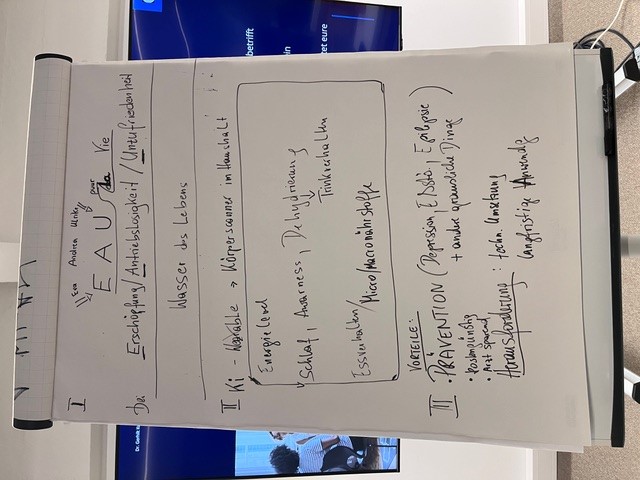 I
"Eva Andrea Ulrike"
E A U pour la Vie
De: Erschöpfung/Antriebslosigkeit/Unzufriedenheit
Wasser des Lebens
II Ki - Wearable → Körperscanner im Haushalt
Energielevel
Schlaf, Awarness, Dehydrierung
Trinkverhalten
Essverhalten/
Micro/Macronährstoffe
VORTEILE:
III • PRÄVENTION (Depression, Epilepsie)
+ andere grausliche Dinge
• kostengünstig
• Arzt sparend
Herausforderung: techn. Umsetzung
langfristige Anwendg
betrifft